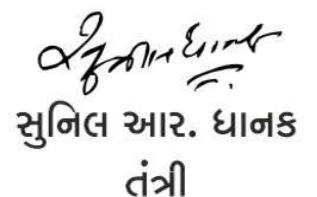 સુનિલ આર. ધાનક
તંત્રી